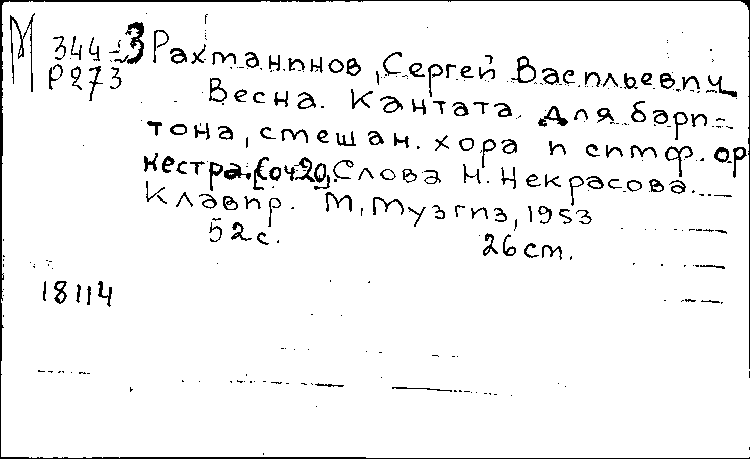 М 344-3 Рахманинов, Сергей Васильевич
Р273
Весна. Кантата для бари-
тона, смешан. хора и симф. ор
кестра. Соч20, Слова Н. Некрасова.
Клавир. М, Музгиз, 1953
52с. 26см.
18114